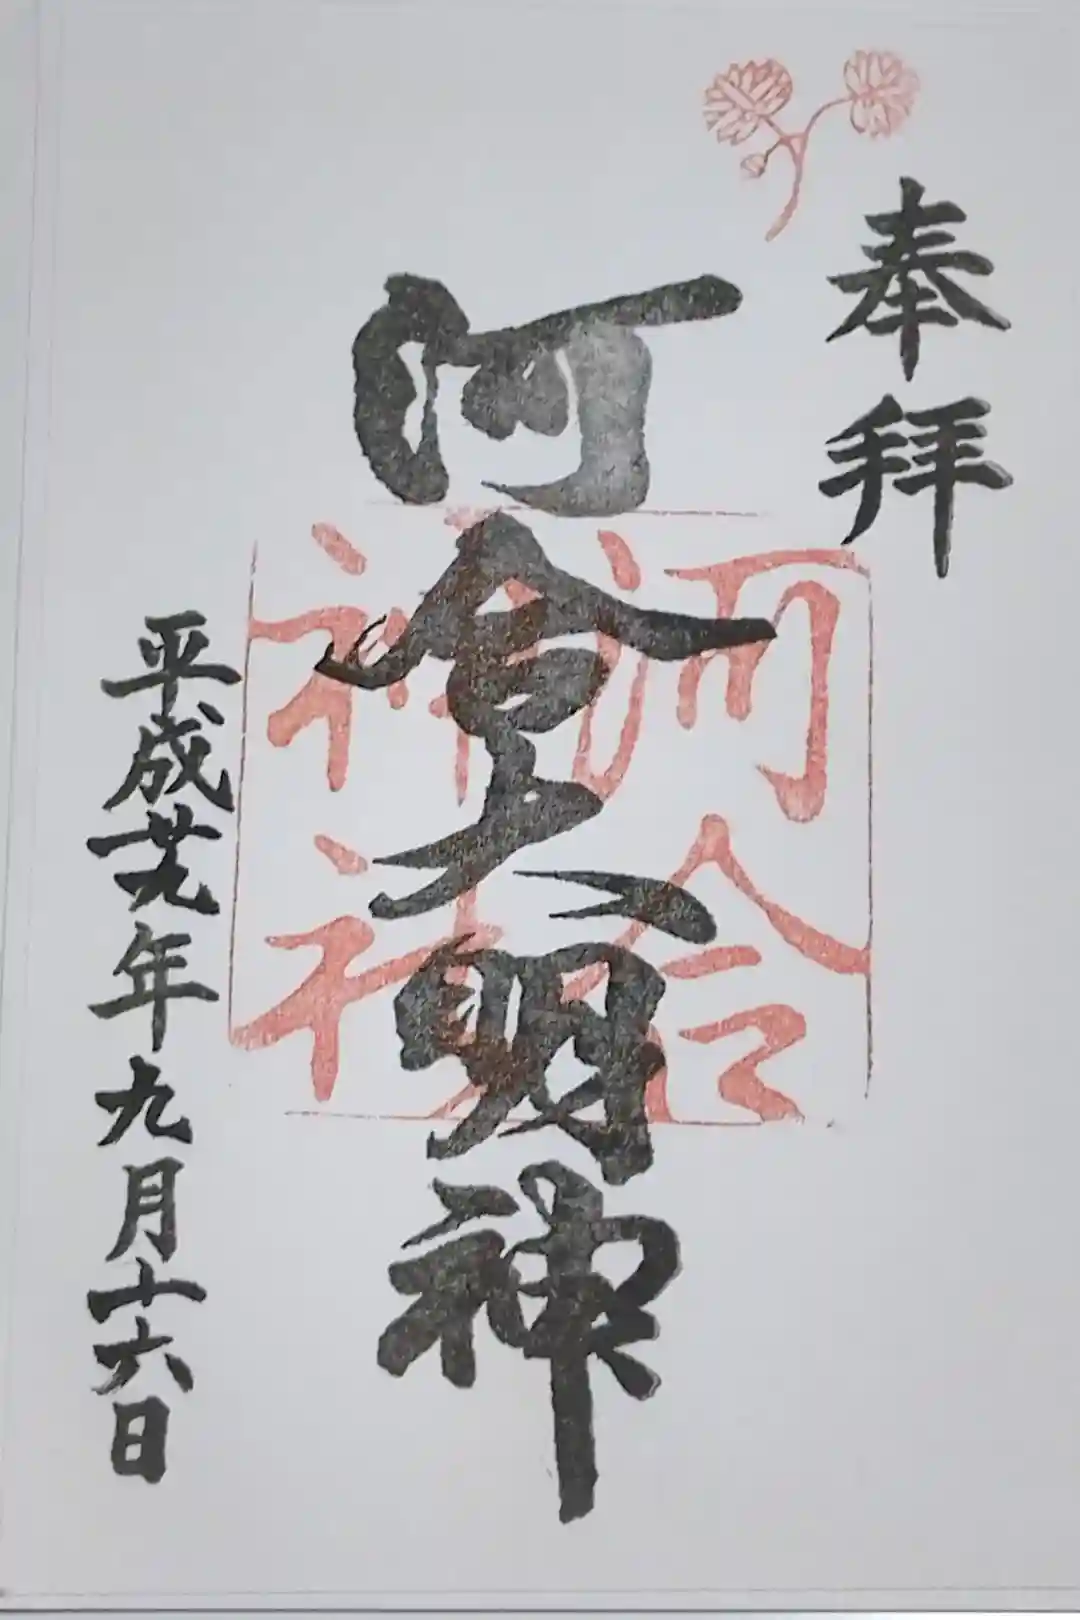 奉拝
河合大明神
河合
神社
平成廿九年九月十六日